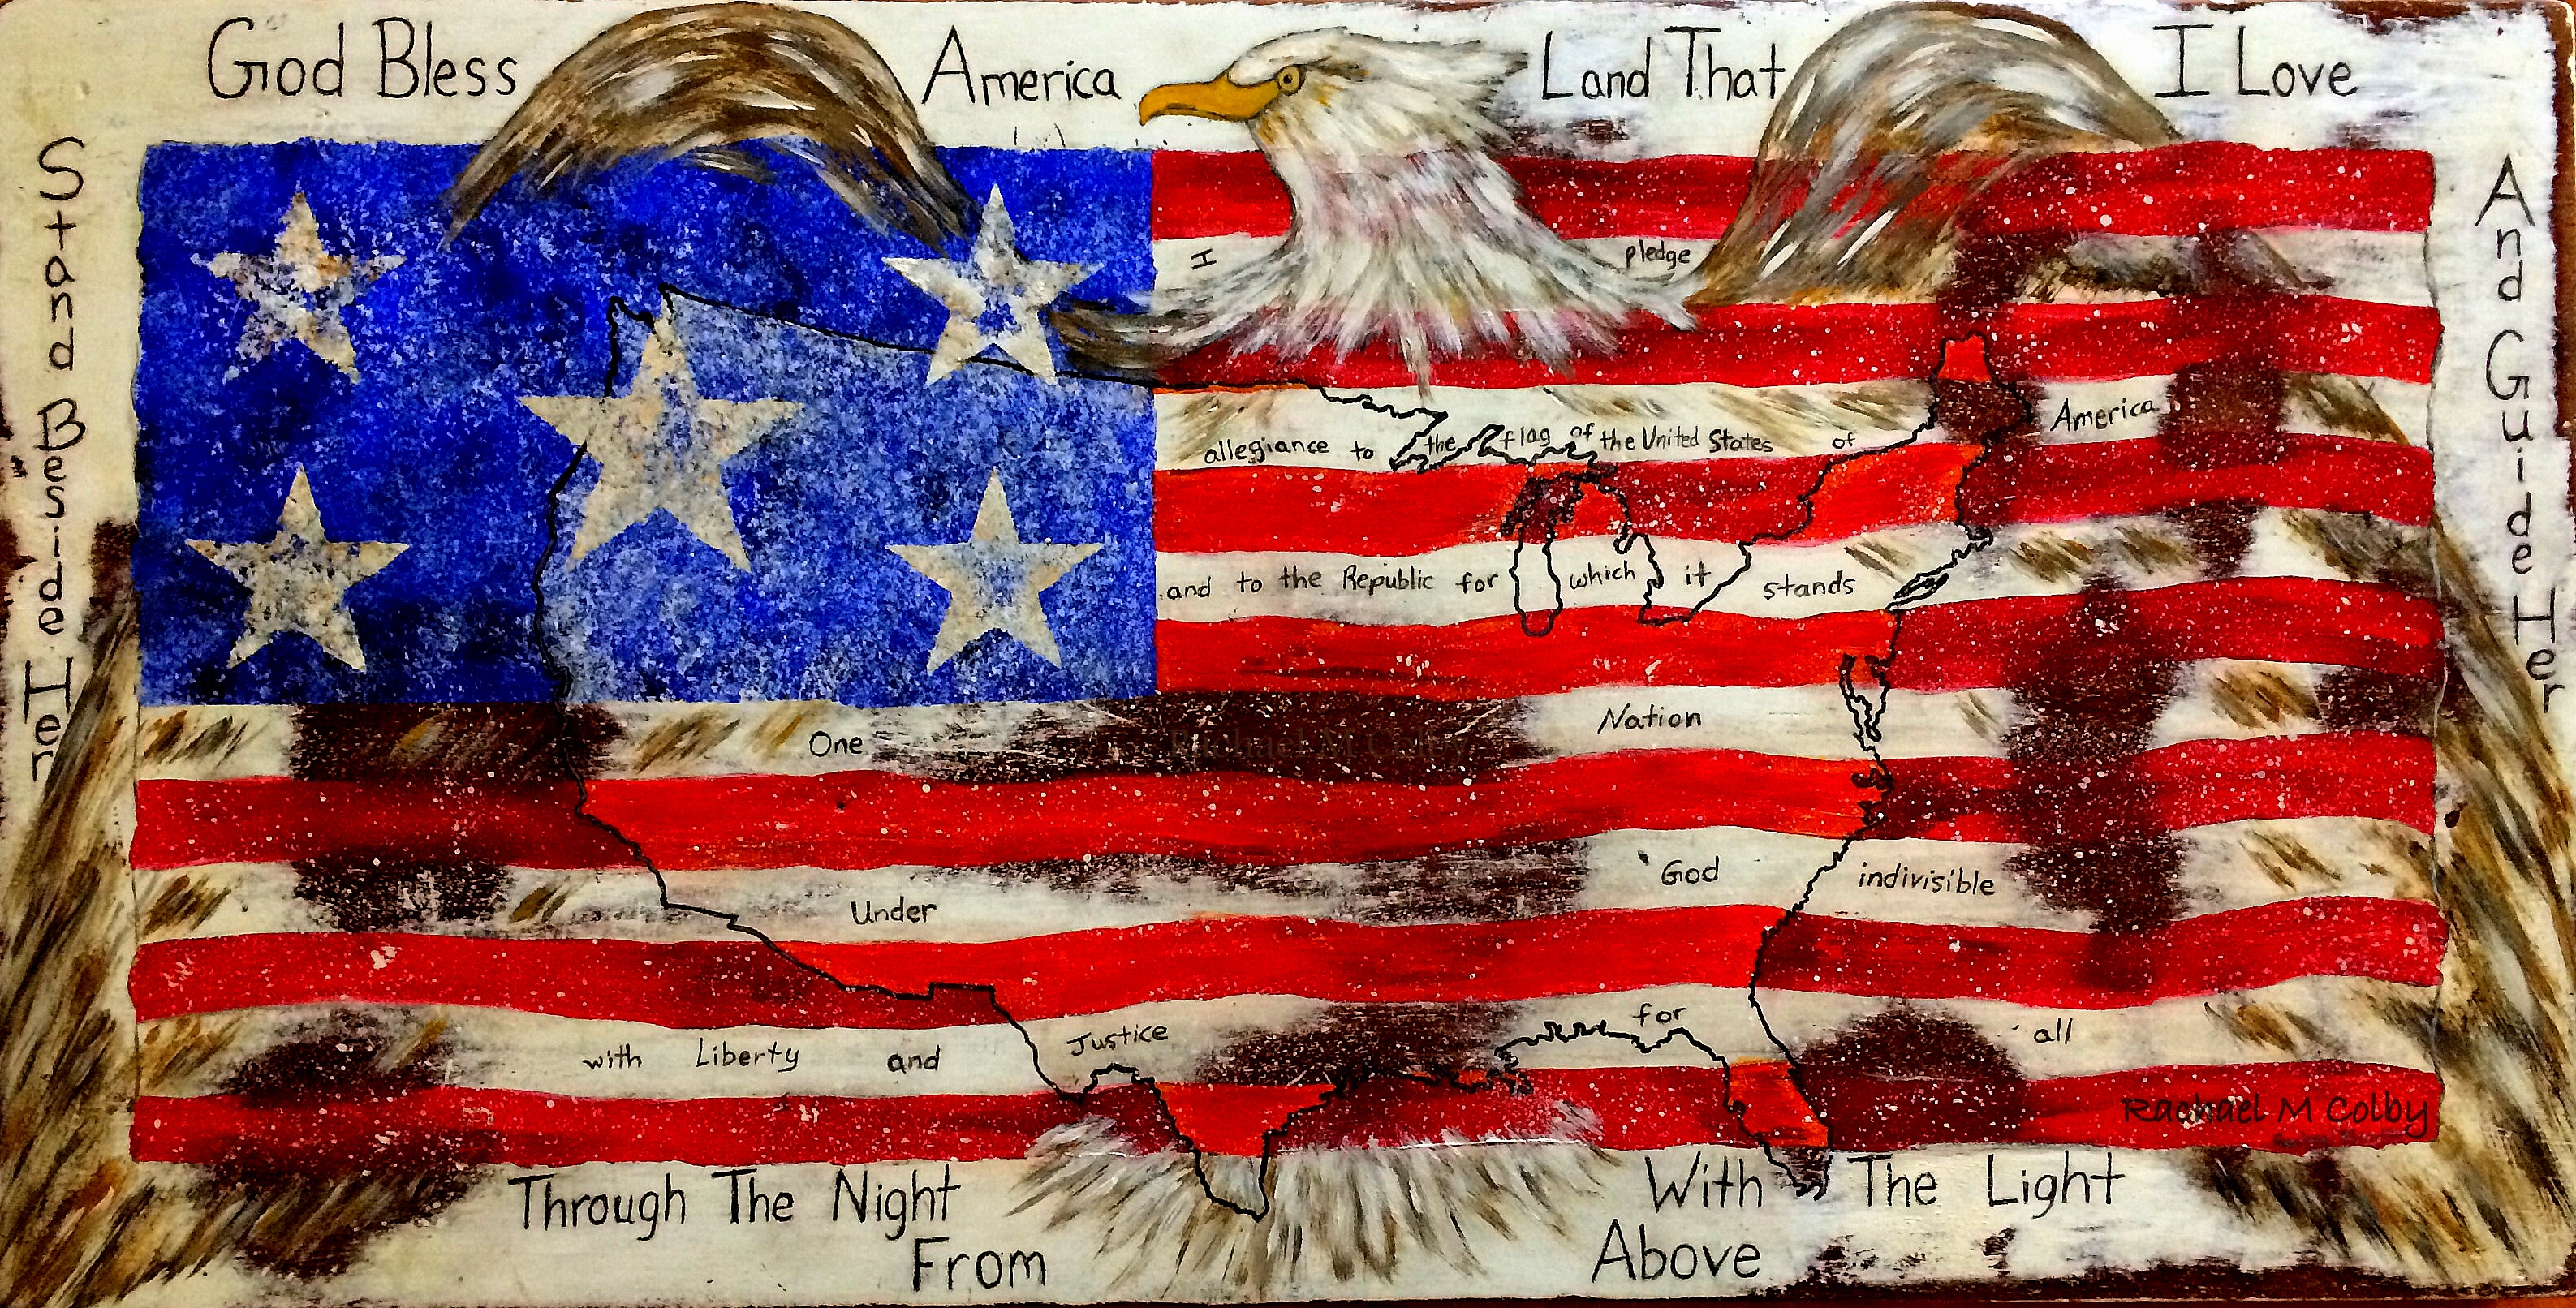 God Bless America Land That I Love
Stand Beside Her
And Guide Her
I pledge
allegiance to the flag of the United States of America
and to the Republic for which it stands
One Nation
Rachael M Colby
Under God indivisible
with Liberty and Justice for all
Rachael M Colby
Through The Night With The Light
From Above